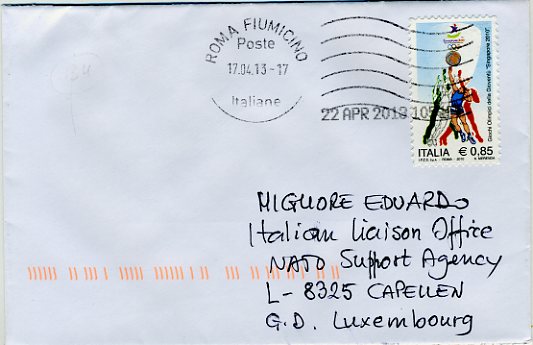 ROMA FIUMICINO
Poste
17.04.13-17
Italiane
22 APR 2013
Giochi Olimpici della Gioventù "Singapore 2010"
ITALIA € 0,85
I.P.Z.S. S.p.A. - ROMA - 2010
MIGLIORE EDUARDO
Italian Liaison Office
NATO Support Agency
L- 8325 CAPELLEN
G.D. Luxembourg